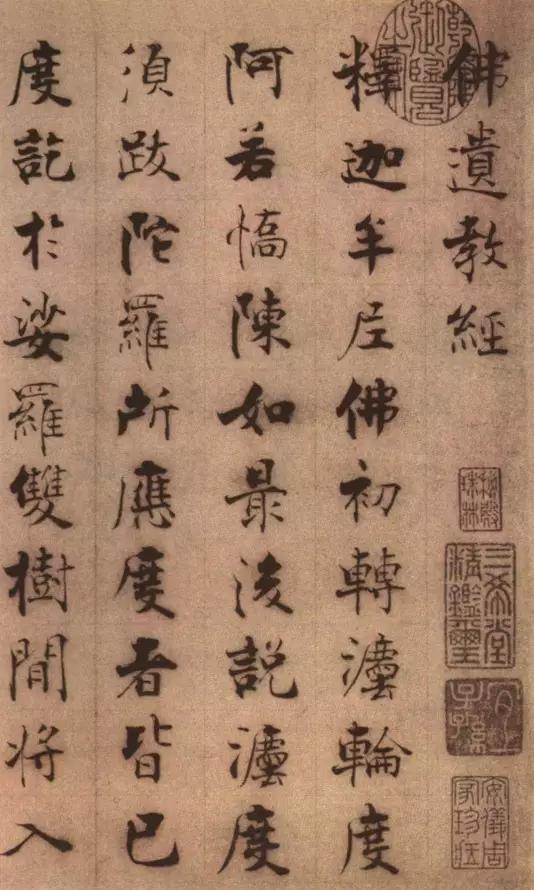 佛遺教經
釋迦牟尼佛初轉灋輪度
阿若憍陳如最後説灋度
須跋陀羅所應度者皆已
度訖於娑羅雙樹間將入
乾隆御覽之寶
三希堂精鑑璽
宜子孫
安儀周家珍藏